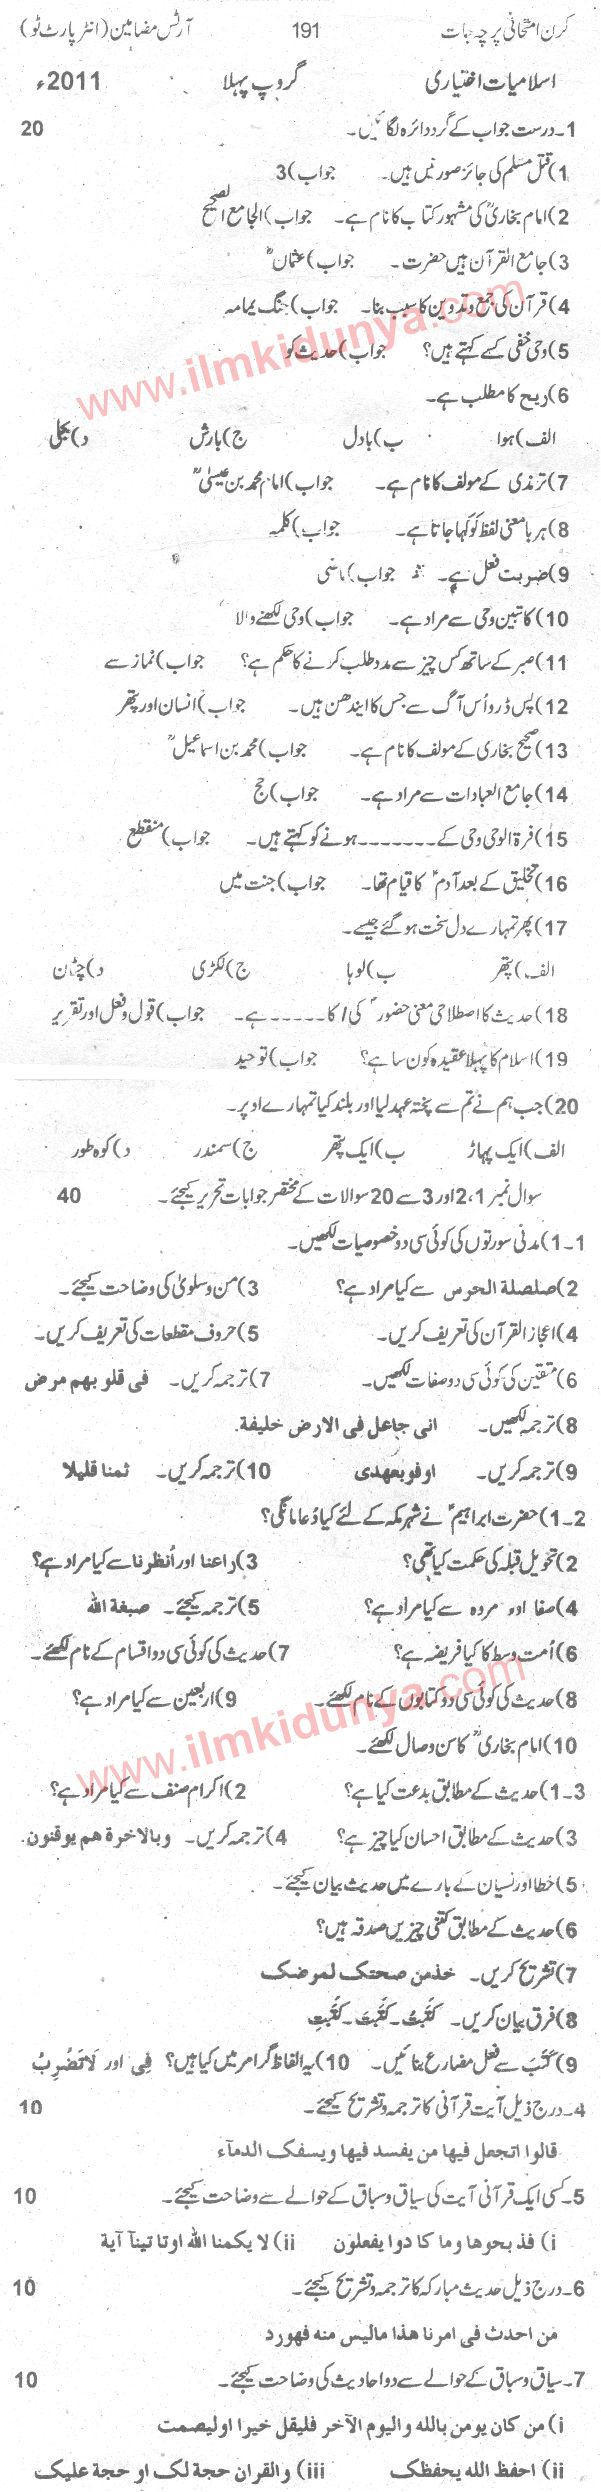 کرن امتحانی پرچہ جات 191 آرٹس مضامین (انٹر پارٹ ٹو)
اسلامیات اختیاری گروپ پہلا 2011ء
1۔ درست جواب کے گرد دائرہ لگائیں۔ 20
1) قتل مسلم کی جائز صورتیں ہیں۔ جواب) 3
2) امام بخاریؒ کی مشہور کتاب کا نام ہے۔ جواب) الجامع الصحیح
3) جامع القرآن ہیں حضرت۔ جواب) عثمانؓ
4) قرآن کی جمع و تدوین کا سبب بنا۔ جواب) جنگ یمامہ
5) وحی خفی کسے کہتے ہیں؟ جواب) حدیث کو
6) ریح کا مطلب ہے۔
الف) ہوا ب) بادل ج) بارش د) بجلی
7) ترمذی کے مولف کا نام ہے۔ جواب) امام محمد بن عیسیٰؒ
8) ہر بامعنی لفظ کو کہا جاتا ہے۔ جواب) کلمہ
9) ضربت فعل ہے۔ جواب) ماضی
10) کاتبین وحی سے مراد ہے۔ جواب) وحی لکھنے والا
11) صبر کے ساتھ کس چیز سے مدد طلب کرنے کا حکم ہے؟ جواب) نماز سے
12) پس ڈرو اُس آگ سے جس کا ایندھن ہیں۔ جواب) انسان اور پتھر
13) صحیح بخاری کے مولف کا نام ہے۔ جواب) محمد بن اسماعیلؒ
14) جامع العبادات سے مراد ہے۔ جواب) حج
15) فرۃ الوحی وحی کے ۔۔۔۔۔۔۔ ہونے کو کہتے ہیں۔ جواب) منقطع
16) تخلیق کے بعد آدمؑ کا قیام تھا۔ جواب) جنت میں
17) پھر تمہارے دل سخت ہو گئے جیسے۔
الف) پتھر ب) لوہا ج) لکڑی د) چٹان
18) حدیث کا اصطلاحی معنی حضورؐ کی/کا ۔۔۔۔۔ ہے۔ جواب) قول و فعل اور تقریر
19) اسلام کا پہلا عقیدہ کون سا ہے؟ جواب) توحید
20) جب ہم نے تم سے پختہ عہد لیا اور بلند کیا تمہارے اوپر۔
الف) ایک پہاڑ ب) ایک پتھر ج) سمندر د) کوہ طور
سوال نمبر 1، 2 اور 3 سے 20 سوالات کے مختصر جوابات تحریر کیجئے۔ 40
1۔ 1) مدنی سورتوں کی کوئی سی دو خصوصیات لکھیں۔
2) صلصلة الحرس سے کیا مراد ہے؟ 3) من و سلویٰ کی وضاحت کیجئے۔
4) اعجاز القرآن کی تعریف کریں۔ 5) حروف مقطعات کی تعریف کریں۔
6) متقین کی کوئی سی دو صفات لکھیں۔ 7) ترجمہ کریں۔ فی قلوبهم مرض
8) ترجمہ لکھیں۔ انی جاعل فی الارض خلیفة۔
9) ترجمہ کریں۔ اوفو بعهدی 10) ترجمہ کریں۔ ثمنا قلیلا
2۔ 1) حضرت ابراہیمؑ نے شہر مکہ کے لئے کیا دُعا مانگی؟
2) تحویل قبلہ کی حکمت کیا تھی؟ 3) راعنا اور اُنظرنا سے کیا مراد ہے؟
4) صفا اور مروہ سے کیا مراد ہے؟ 5) ترجمہ کیجئے۔ صبغة الله
6) اُمت وسط کا کیا فریضہ ہے؟ 7) حدیث کی کوئی سی دو اقسام کے نام لکھئے۔
8) حدیث کی کوئی سی دو کتابوں کے نام لکھئے۔ 9) اربعین سے کیا مراد ہے؟
10) امام بخاریؒ کا سن وصال لکھئے۔
3۔ 1) حدیث کے مطابق بدعت کیا ہے؟ 2) اکرام صنف سے کیا مراد ہے؟
3) حدیث کے مطابق احسان کیا چیز ہے؟ 4) ترجمہ کریں۔ وبالاخرة هم یوقنون۔
5) خطا اور نسیان کے بارے میں حدیث بیان کیجئے۔
6) حدیث کے مطابق کتنی چیزیں صدقہ ہیں؟
7) تشریح کریں۔ خذمن صحتک لمرضک
8) فرق بیان کریں۔ كَتَبْتُ۔ كَتَبْتَ۔ كَتَبْتِ
9) كَتَبَ سے فعل مضارع بنائیں۔ 10) یہ الفاظ گرامر میں کیا ہیں؟ فِی اور لَا تَضْرِبُ
4۔ درج ذیل آیت قرآنی کا ترجمہ و تشریح کیجئے۔ 10
قالوا اتجعل فیها من یفسد فیها ویسفک الدمآء
5۔ کسی ایک قرآنی آیت کی سیاق و سباق کے حوالے سے وضاحت کیجئے۔ 10
i) فذبحوها وما کا دوا یفعلون ii) لا یکمنا الله اوتا تینآ آیة
6۔ درج ذیل حدیث مبارکہ کا ترجمہ و تشریح کیجئے۔ 10
من احدث فی امرنا هذا مالیس منه فهورد
7۔ سیاق و سباق کے حوالے سے دو احادیث کی وضاحت کیجئے۔ 10
i) من کان یومن بالله والیوم الآخر فلیقل خیرا اولیصمت
ii) احفظ الله یحفظک iii) والقران حجة لک او حجة علیک
www.ilmkidunya.com
www.ilmkidunya.com